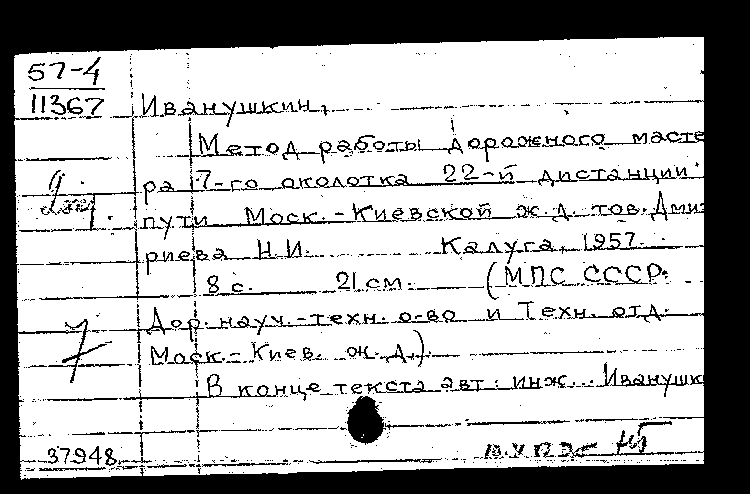 57-4
11367
Иванушкин,
Метод работы дорожного масте
ра 7-го околотка 22-й дистанции
пути Моск.-Киевской ж.д. тов. Дмит
риева Н.И. Калуга, 1957.
8 с. 21 см. (МПС СССР.
Дор. науч.-техн. о-во и Техн. отд.
Моск.-Киев. ж.д.).
В конце текста авт: инж... Иванушк
37948